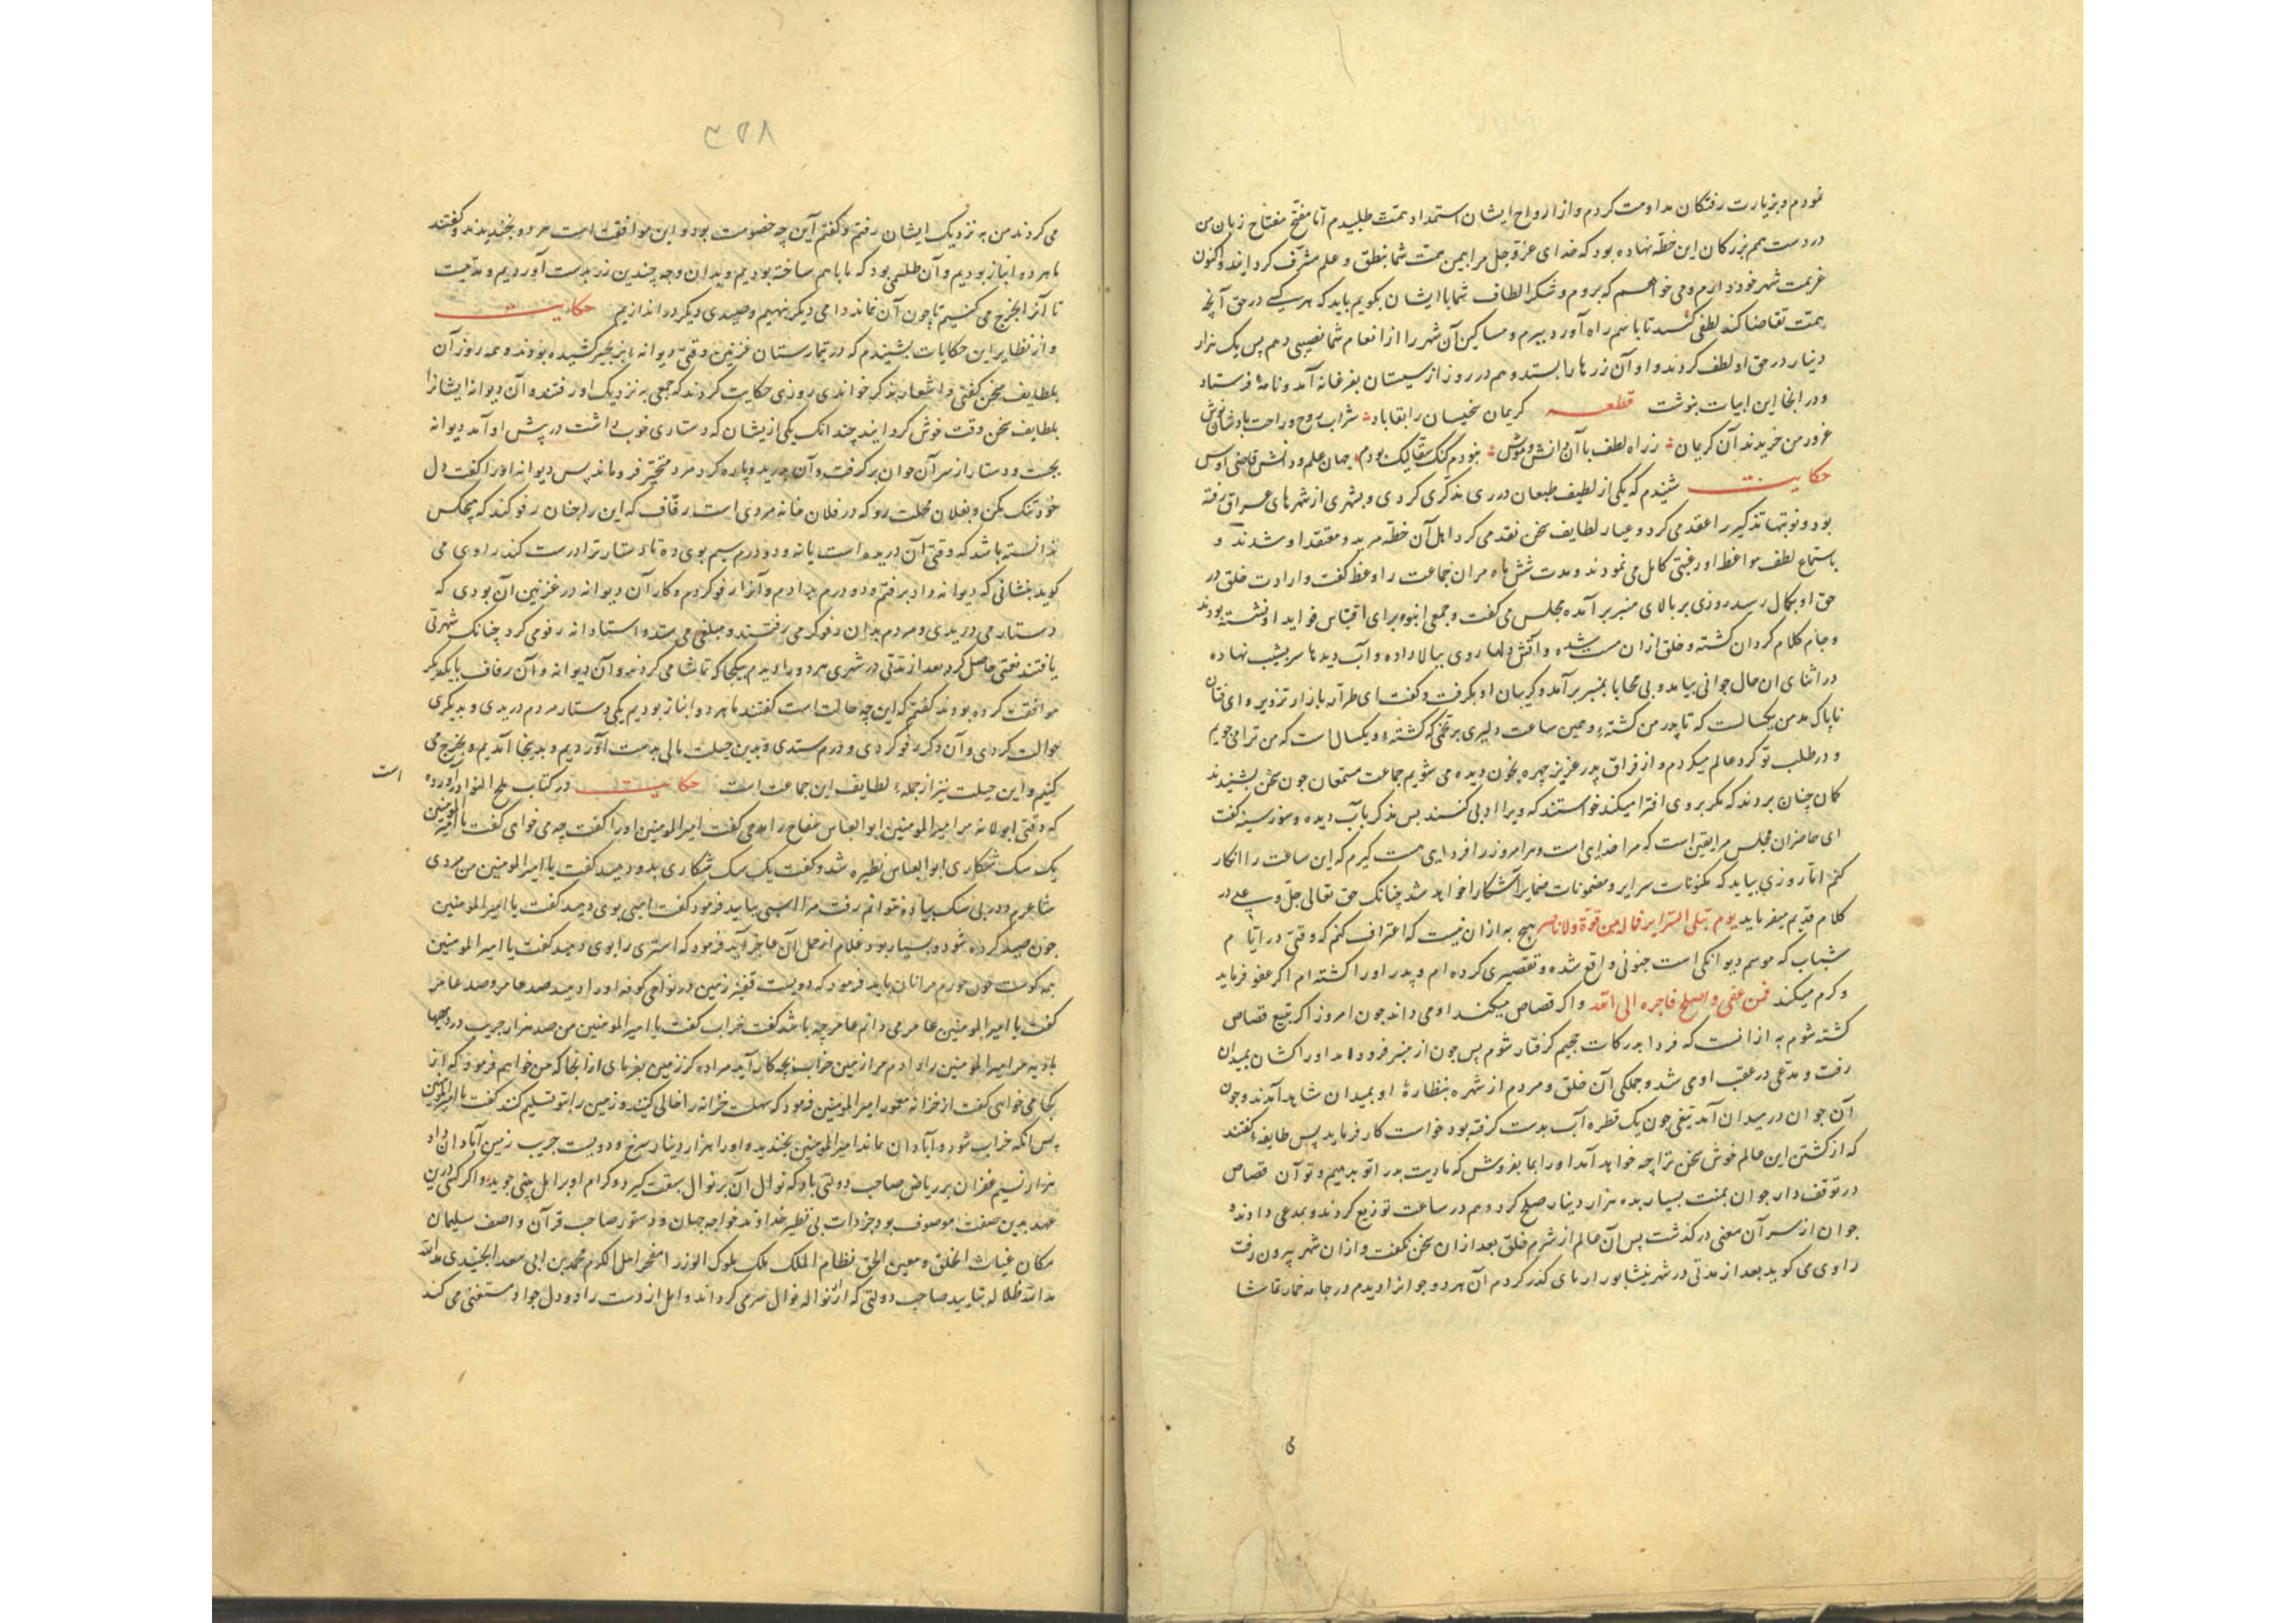 نمودم و بزیارت رفتکان مداومت کردم و از ارواح ایشان استمداد همت طلبیدم اما مفتح مفتاح زبان من
در دست هم بزرکان این خطه نهاده بود که خدای عز و جل مرا بیمن همت شما بنطق و علم مشرف کردانید و اکنون
عزیمت شهر خود دارم و می خواهم که بروم و شکر الطاف شما با ایشان بکویم باید که هر کسی در حق آنچه
همت تقاضا کند لطفی کنید تا باسم راه آورد ببرم و مساکین آن شهر را از انعام شما نصیبی دهم پس یک هزار
دینار در حق او لطف کردند و او آن زرها را بستد و هم در روز از سیستان بفرغانه آمد و نامهٔ فرستاد
و در انجا این ابیات بنوشت قطعه کریمان سخیسان را بقا باد شراب روح و راحت باد شان نوش
غرور من خریدند آن کریمان ز راه لطف با آن دانش و هوش نبودم کنک جهان علم و دانش قاضی اوش
حکایت شنیدم که یکی از لطیف طبعان در ری مذکری کردی و بشهری از شهرهای عراق رفته
بود و نوبتها تذکیر را عقد می کرد و عیار لطایف سخن نقد می کرد اهل آن خطه مرید و معتقد او شدند و
باستماع لطف مواعظ او رغبتی کامل می نمودند و مدت شش ماه مران جماعت را وعظ کفت و ارادت خلق در
حق او بکمال رسید روزی بر بالای منبر بر آمده مجلس می کفت و جمعی انبوه برای اقتباس فواید او نشسته بودند
و جام کلام کردان کشته و خلق ازان مست شده و آتش دلها روی ببالا داده و آب دیدها سر بشیب نهاده
در اثنای ان حال جوانی بیامد و بی محابا بمنبر بر آمد و کریبان او بکرفت و کفت ای طرار بازار تزویر و ای فتان
ناپاک من یکسالست که تا پدر من کشتهٔ و همین ساعت دلیری بر کشتهٔ و یکسال است که من ترا می جویم
و در طلب تو کرد عالم میکردم و از فراق پدر عزیز چهره بخون دیده می شویم جماعت مستمعان چون سخن بشنیدند
کمان چنان بردند که مکر بر وی افترا میکند خواستند که ویرا ادبی کنند پس مذکر بآب دیده و سوز سینه کفت
ای حاضران مجلس مرا یقین است که مرا خدای است و مر امروز را فردایی هست کیرم که این ساعت را انکار
کنم اما روزی بیاید که مکنونات سرایر و مضمونات ضمایر آشکارا خواهد شد چنانک حق تعالی جل و علی در
کلام قدیم میفرماید یوم تبلی السرایر فما له من قوة و لا ناصر هیچ به ازان نیست که اعتراف کنم که وقتی در ایام
شباب که موسم دیوانکی است جنونی واقع شده و تقصیری کرده ام و پدر او را کشته ام اکر عفو فرماید
و کرم میکند فمن عفی و اصلح فاجره الی الله و اکر قصاص میکند او می داند چون امروز اکر بتیغ قصاص
کشته شوم به ازانست که فردا بدرکات جحیم کرفتار شوم پس چون از منبر فرود آمد او را کشان بمیدان
رفت و مدعی در عقب اوی شد و جملکی آن خلق و مردم از شهر بنظارهٔ او بمیدان شاید آمدند و چون
آن جوان در میدان آمد تیغی چون یک قطره آب بدست کرفته بود خواست کار فرماید پس طایفهٔ کفتند
که از کشتن این عالم خوش سخن ترا چه خواهد آمد او را بما بفروش که ما دیت پدرا تو بدهیم و تو آن قصاص
در توقف دار جوان بمنت بسیار بده هزار دینار صلح کرد و هم در ساعت توزیع کردند و بمدعی دادند و
جوان از سر آن معنی در کذشت پس آن عالم از شرم خلق بعد ازان سخن نکفت و ازان شهر بیرون رفت
راوی می کوید بعد از مدتی در شهر نیشابور کذر کردم آن هر دو جوانرا دیدم در جامه خمار تماشا
۳۵۸
می کردند من به نزدیک ایشان رفتم و کفتم آین چه خصومت بود و این موافقت است هر دو بخندیدند و کفتند
ما هر دو انباز بودیم و آن طلسمی بود که ما باهم ساخته بودیم و بدان وجه چندین زر بدست آوردیم و مدتیست
تا آنرا بخرج می کنیم تا چون آن نماند دامی دیکر بنهیم و صیدی دیکر در اندازیم حکایت
و از نظایر این حکایات بشنیدم که در بیمارستان غزنین وقتی دیوانه بزنجیر کشیده بودند و همه روز آن
بلطایف سخن کفتی و اشعار بذکر خواندی روزی حکایت کردند که جمعی به نزدیک او رفتند و آن دیوانه ایشانرا
بلطایف سخن وقت خوش کردانید چندانک یکی ازیشان که دستاری خوب داشت در پیش او آمد دیوانه
بجست و دستار از سر آن جوان بر کرفت و آن بدرید و پاره کرد مرد متحیر فرو ماند پس دیوانه او را کفت دل
خود تنک مکن و بفلان محلت رو که در فلان خانه مردی است رفاف که این را چنان رفو کند که هیچکس
ندانسته باشد که وقتی آن دریده است یا نه و دو درم سیم بوی ده تا دستار ترا درست کند راوی می
کوید بنشانی که دیوانه داد برفتم و دو درم بدادم و آنرا رفو کردم و کار آن دیوانه در غزنین آن بودی که
دستار می دریدی و مردم بدان رفوکر می رفتند و مبلغی می ستد و استادانه رفو می کرد چنانک شهرتی
یافتند نعمتی حاصل کرد بعد از مدتی در شهری هر دو را دیدم بیکجا که تماشا می کردند و آن دیوانه و آن رفاف با یکدیکر
موافقت کرده بودند کفتم که این چه حالت است کفتند ما هر دو انباز بودیم یکی دستار مردم دریدی و بدیکری
حوالت کردی و آن دکر رفو کردی و درم ستدی و بدین حیلت مالی بدست آوردیم و بدینجا آمدیم و بخرج می
کنیم و این حیلت نیز از جملهٔ لطایف این جماعت است حکایت در کتاب ملح النوادر آورده است
که وقتی ابو دلامه مر امیر المومنین ابو العباس سفاح را مدحی کفت امیر المومنین او را کفت چه می خواهی کفت یا امیر المومنین
یک سک شکاری ابو العباس نظیره شد و کفت یک سک شکاری بدو دهید کفت یا امیر المومنین من مردی
شاعرم و در پی سک پیاده نتوانم رفت مرا اسبی بباید فرمود کفت اسبی بوی دهید کفت یا امیر المومنین
چون صید کرده شود و بسیار بود غلام از حمل آن عاجز آید فرمود که استری را بوی دهید کفت یا امیر المومنین
همه کوشت چون خورم مرا نان باید فرمود که دویست قفیز زمین در نواحی کوفه او را دهید صد عامر و صد غامر
کفت یا امیر المومنین عامر می دانم غامر چه باشد کفت خراب کفت یا امیر المومنین من صد هزار جریب در دیهها
بادیه مر امیر المومنین را دادم مرا زمین خراب بچه کار آید مرا ده کز زمین بفرمای از انجا که من خواهم فرمود که از
کجا می خواهی کفت از خزانه معمور امیر المومنین فرمود که سهلست خزانه را خالی کنید و زمین را بتو تسلیم کنند کفت یا امیر المومنین
پس انکه خراب شود و آبادان ماند امیر المومنین بخندید و او را هزار دینار سرخ و دویست جریب زمین آبادان داد
هزار نسیم غفران بر ریاض صاحب دولتی باد که نوال آن بر نوال سبقت کیرد و کرام او بر امل پیشی جوید و اکر کسی درین
عهد بدین صفت موصوف بود جز ذات بی نظیر خداوند خواجه جهان و دستور صاحب قرآن و اصف سلیمان
مکان غیاث الخلق و معین الحق نظام الملک ملک ملوک الوزرا مفخر اهل الکرم محمد بن ابی سعد الجنیدی مد الله
مد الله ظلاله بتایید صاحب دولتی که از نواله نوال سر می کرداند و اهل از دست راد و دل جواد مستغنی می کند